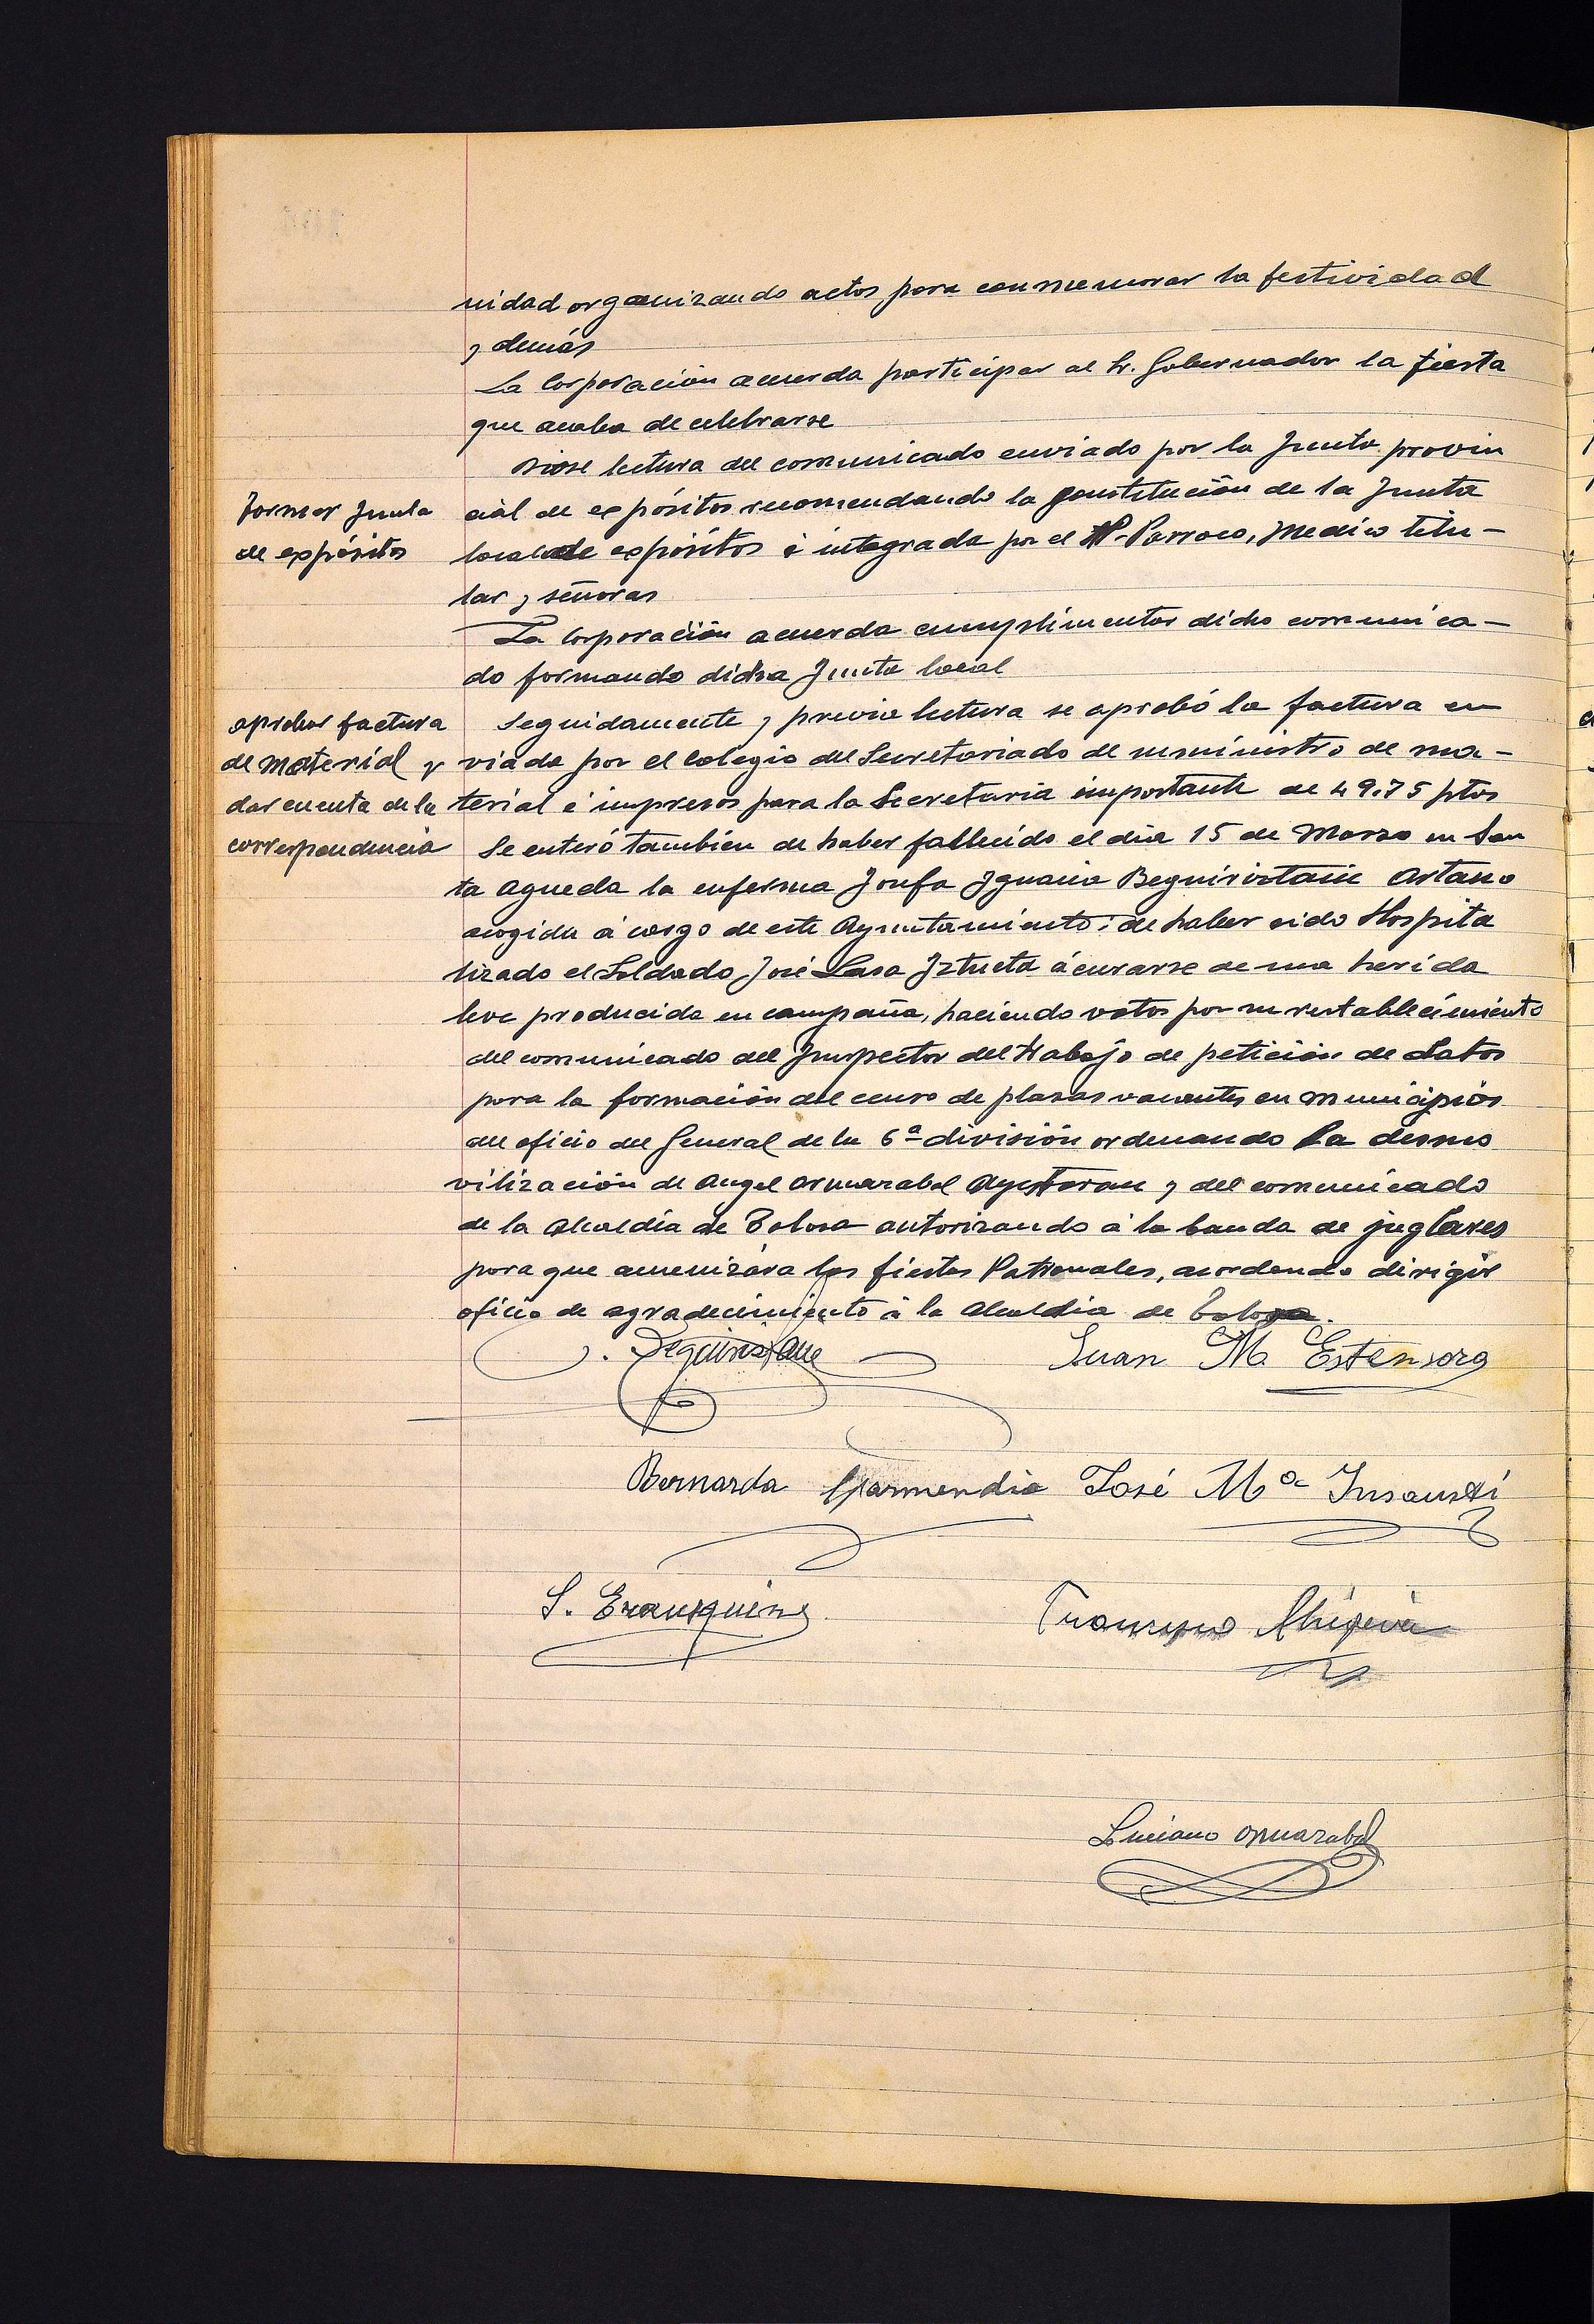 nidad organizando actos para conmemorar la festividad
y demás
La Corporación acuerda participar al Sr. Gobernador la fiesta
que acaba de celebrarse
Diose lectura del comunicado enviado por la Junta provin
Formar Junta
de expósitos
cial de expósitos recomendando la constitución de la Junta
local de expósitos é integrada por el Parroco, Medico titu-
lar y señoras
La Corporación acuerda cumplimentar dicho comunica-
do formando dicha Junta local
aprobar factura
de material y
dar cuenta de la
correspondencia
Seguidamente y previa lectura se aprobó la factura en
viada por el Colegio del Secretariado de suministro de ma-
terial é impresos para la Secretaria importante de 49.75 ptas
Se enteró tambien de haber fallecido el dia 15 de Marzo en San
ta Agueda la enferma Josefa Ignacia Beguiristain Artano
acogida á cargo de este Ayuntamiento: de haber sido Hospita
lizado el Soldado José Lasa Iztueta á curarse de una herida
leve producida en campaña, haciendo votos por su restablecimiento
del comunicado del Inspector del trabajo de petición de datos
para la formación del censo de plazas vacantes en municipios
del oficio del General de la 6ª división ordenando la desmo
vilización de Angel Ormazabal Ayestaran y del comunicado
de la Alcaldía de Tolosa autorizando á la banda de juglares
para que amenizára las fiestas Patronales, acordando dirigir
oficio de agradecimiento á la Alcaldia de Tolosa.
J. Beguiristain
Juan M. Estensoro
Bernardo Garmendia
José Mª Insausti
S. Erausquin
Francisco
Luciano Ormazabal